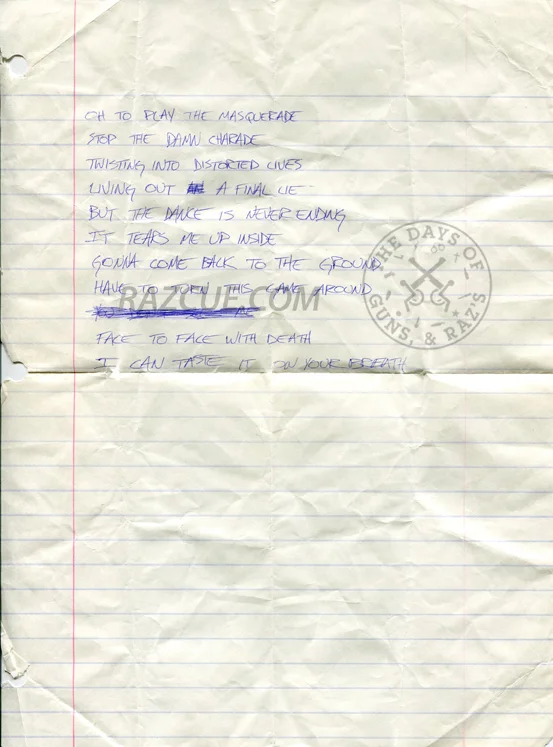 OH TO PLAY THE MASQUERADE
STOP THE DAMN CHARADE
TWISTING INTO DISTORTED LIVES
LIVING OUT A FINAL LIE
BUT THE DANCE IS NEVER ENDING
IT TEARS ME UP INSIDE
GONNA COME BACK TO THE GROUND
HAVE TO TURN THIS GAME AROUND
FACE TO FACE WITH DEATH
I CAN TASTE IT ON YOUR BREATH
RAZCUE.COM
THE DAYS OF
GUNS, & RAZ'S